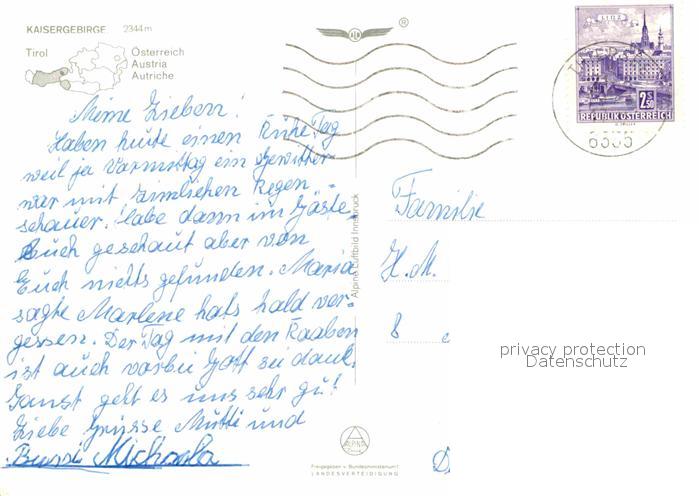 KAISERGEBIRGE 2344m
Tirol
Österreich
Austria
Autriche
Meine Lieben!
Haben heute einen Ruhe Tag
weil ja Vormittag ein Gewitter
war mit zimlichen Regen-
schauer. Habe dann im Gäste
Buch geschaut aber von
Euch nichts gefunden. Maria
sagte Marlene hats hald ver-
gessen. Der Tag mit den Raaben
ist auch vorbei Gott sei dank.
Sonst geht es uns sehr gut!
Liebe Grüsse Mutti und
Bussi Michaela
Alpine Luftbild Innsbruck
®
LINZ
2.50
S
REPUBLIK ÖSTERREICH
Familie
H. M.
8
privacy protection
Datenschutz
ALPINE
Freigegeben v. Bundesministerium f.
LANDESVERTEIDIGUNG
D